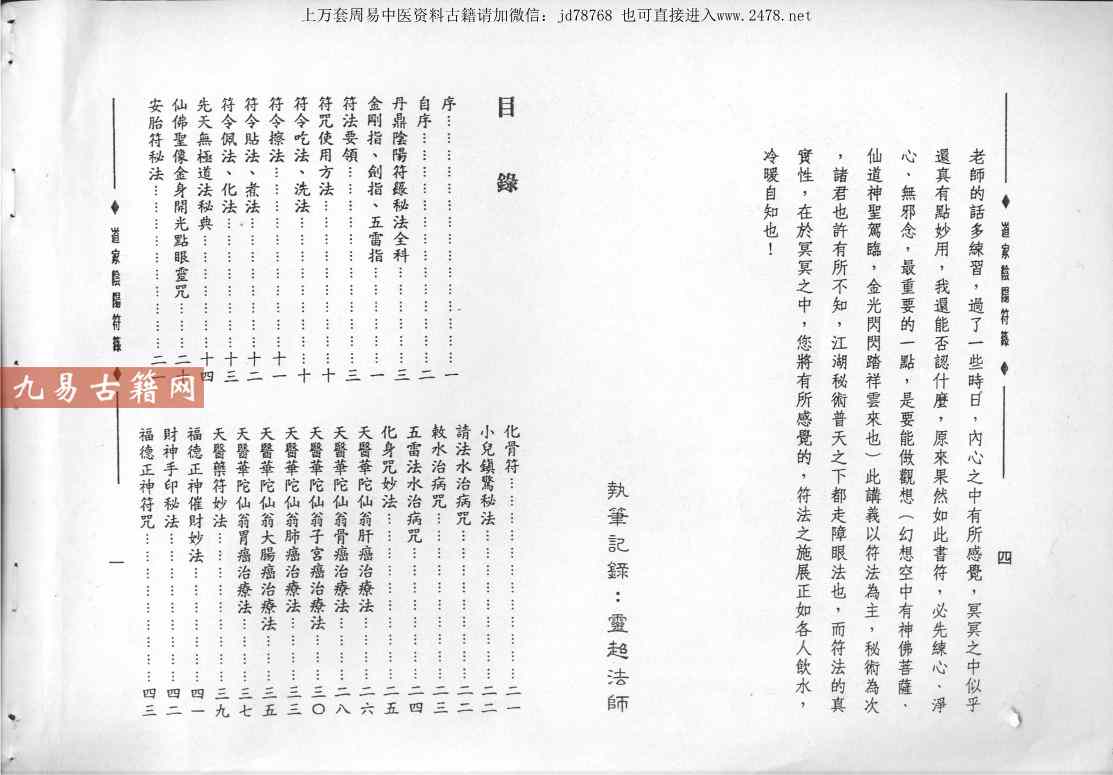 上万套周易中医资料古籍请加微信：jd78768 也可直接进入www.2478.net
道家陰陽符籙
四
老師的話多練習，過了一些時日，內心之中有所感覺，冥冥之中似乎
還真有點妙用，我還能否認什麼，原來果然如此書符，必先練心、淨
心、無邪念，最重要的一點，是要能做觀想（幻想空中有神佛菩薩、
仙道神聖駕臨，金光閃閃踏祥雲來也）此講義以符法為主，秘術為次
，諸君也許有所不知，江湖秘術普天之下都走障眼法也，而符法的真
實性，在於冥冥之中，您將有所感覺的，符法之施展正如各人飲水，
冷暖自知也！
執筆記錄：靈超法師
目錄
序……………………一
自序……………………二
丹鼎陰陽符籙秘法全科……………………三
金剛指、劍指、五雷指……………………一
符法要領……………………三
符咒使用方法……………………十
符令吃法、洗法……………………十
符令擦法……………………十一
符令貼法、煮法……………………十二
符令佩法、化法……………………十三
先天無極道法秘典……………………十四
仙佛聖像金身開光點眼靈咒……………………二十
安胎符秘法……………………二一
化骨符……………………二一
小兒鎮驚秘法……………………二二
請法水治病咒……………………二二
敕水治病咒……………………二三
五雷法水治病咒……………………二四
化身咒妙法……………………二五
天醫華陀仙翁肝癌治療法……………………二六
天醫華陀仙翁骨癌治療法……………………二八
天醫華陀仙翁子宮癌治療法……………………三〇
天醫華陀仙翁肺癌治療法……………………三三
天醫華陀仙翁大腸癌治療法……………………三五
天醫華陀仙翁胃癌治療法……………………三七
天醫藥符妙法……………………三九
福德正神催財妙法……………………四一
財神手印秘法……………………四二
福德正神符咒……………………四三
道家陰陽符籙
一
九易古籍网